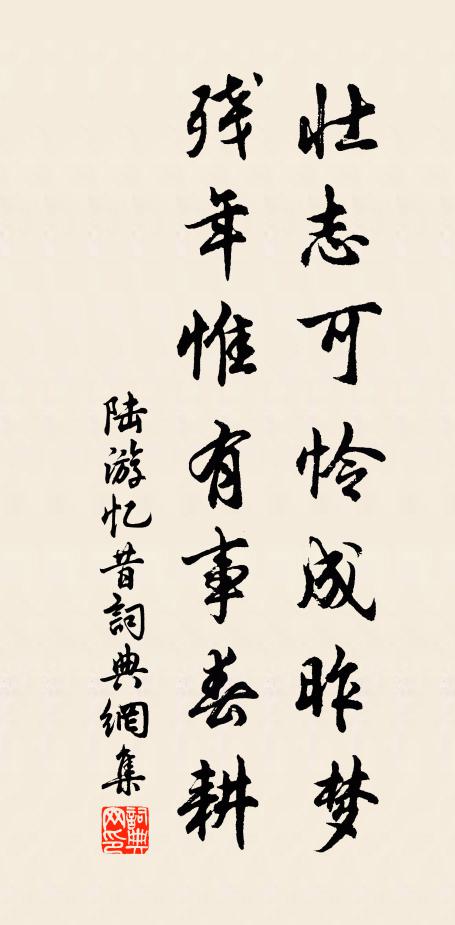 壮志可怜成昨梦
残年惟有事春耕
陆游忆昔詞典網集
詞典网印